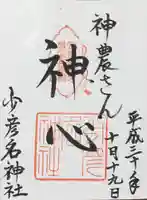 神農さん
平成三十年
十月十九日
神心
少彦名神社